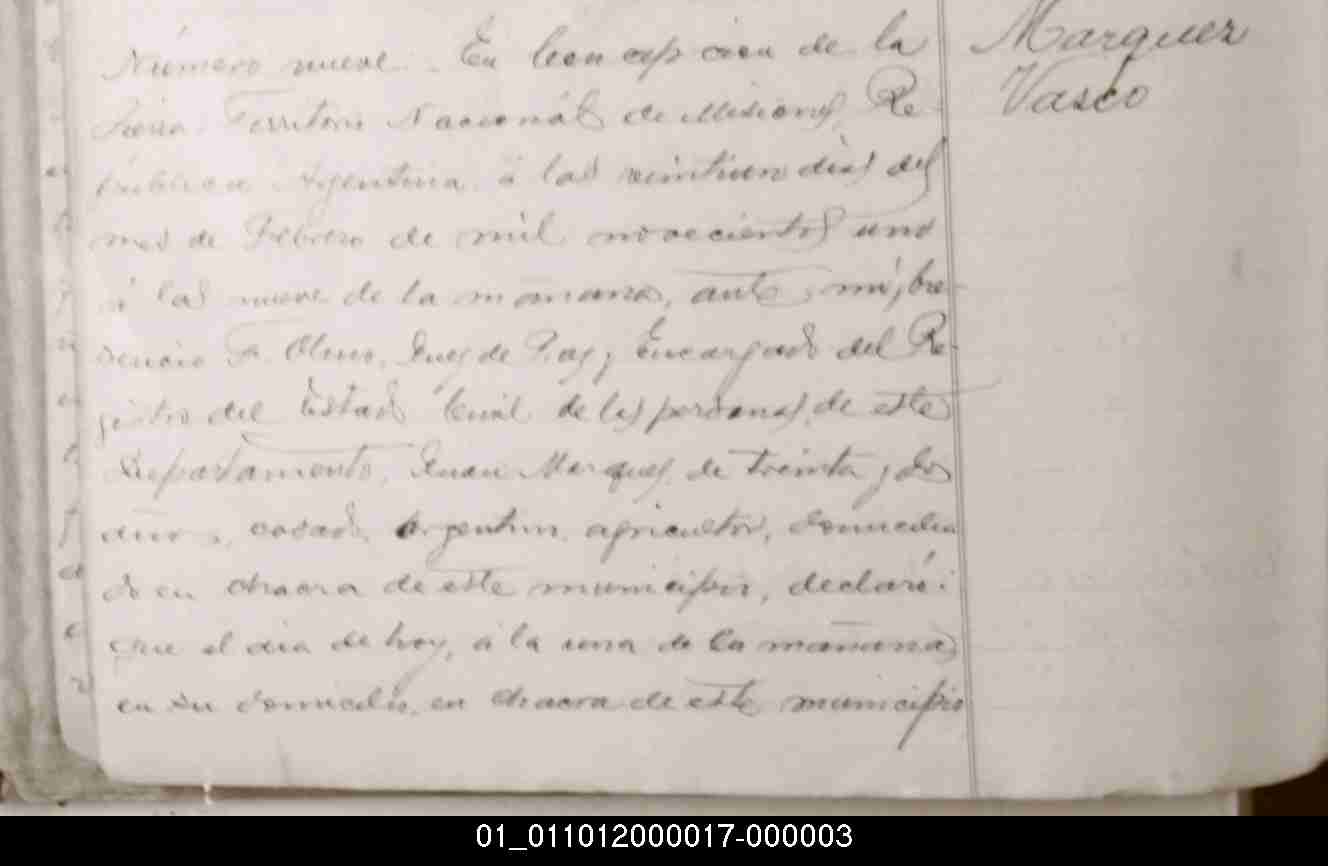 Número nueve. En Concepcion de la
Sierra Territorio Nacional de Misiones, Re-
pública Argentina, á los veintiun dias del
mes de Febrero de mil novecientos uno
á las nueve de la mañana, ante mi, Cre-
sencio F. Olmo, Juez de Paz y Encargado del Re-
gistro del Estado Civil de las personas de este
Departamento, Juan Marquez de treinta y dos
años, casado, Argentino, agricultor, domicilia
do en chacra de este municipio, declaró:
Que el dia de hoy, á la una de la mañana,
en su domicilio, en chacra de este municipio
Marquez
Vasco
01_011012000017-000003